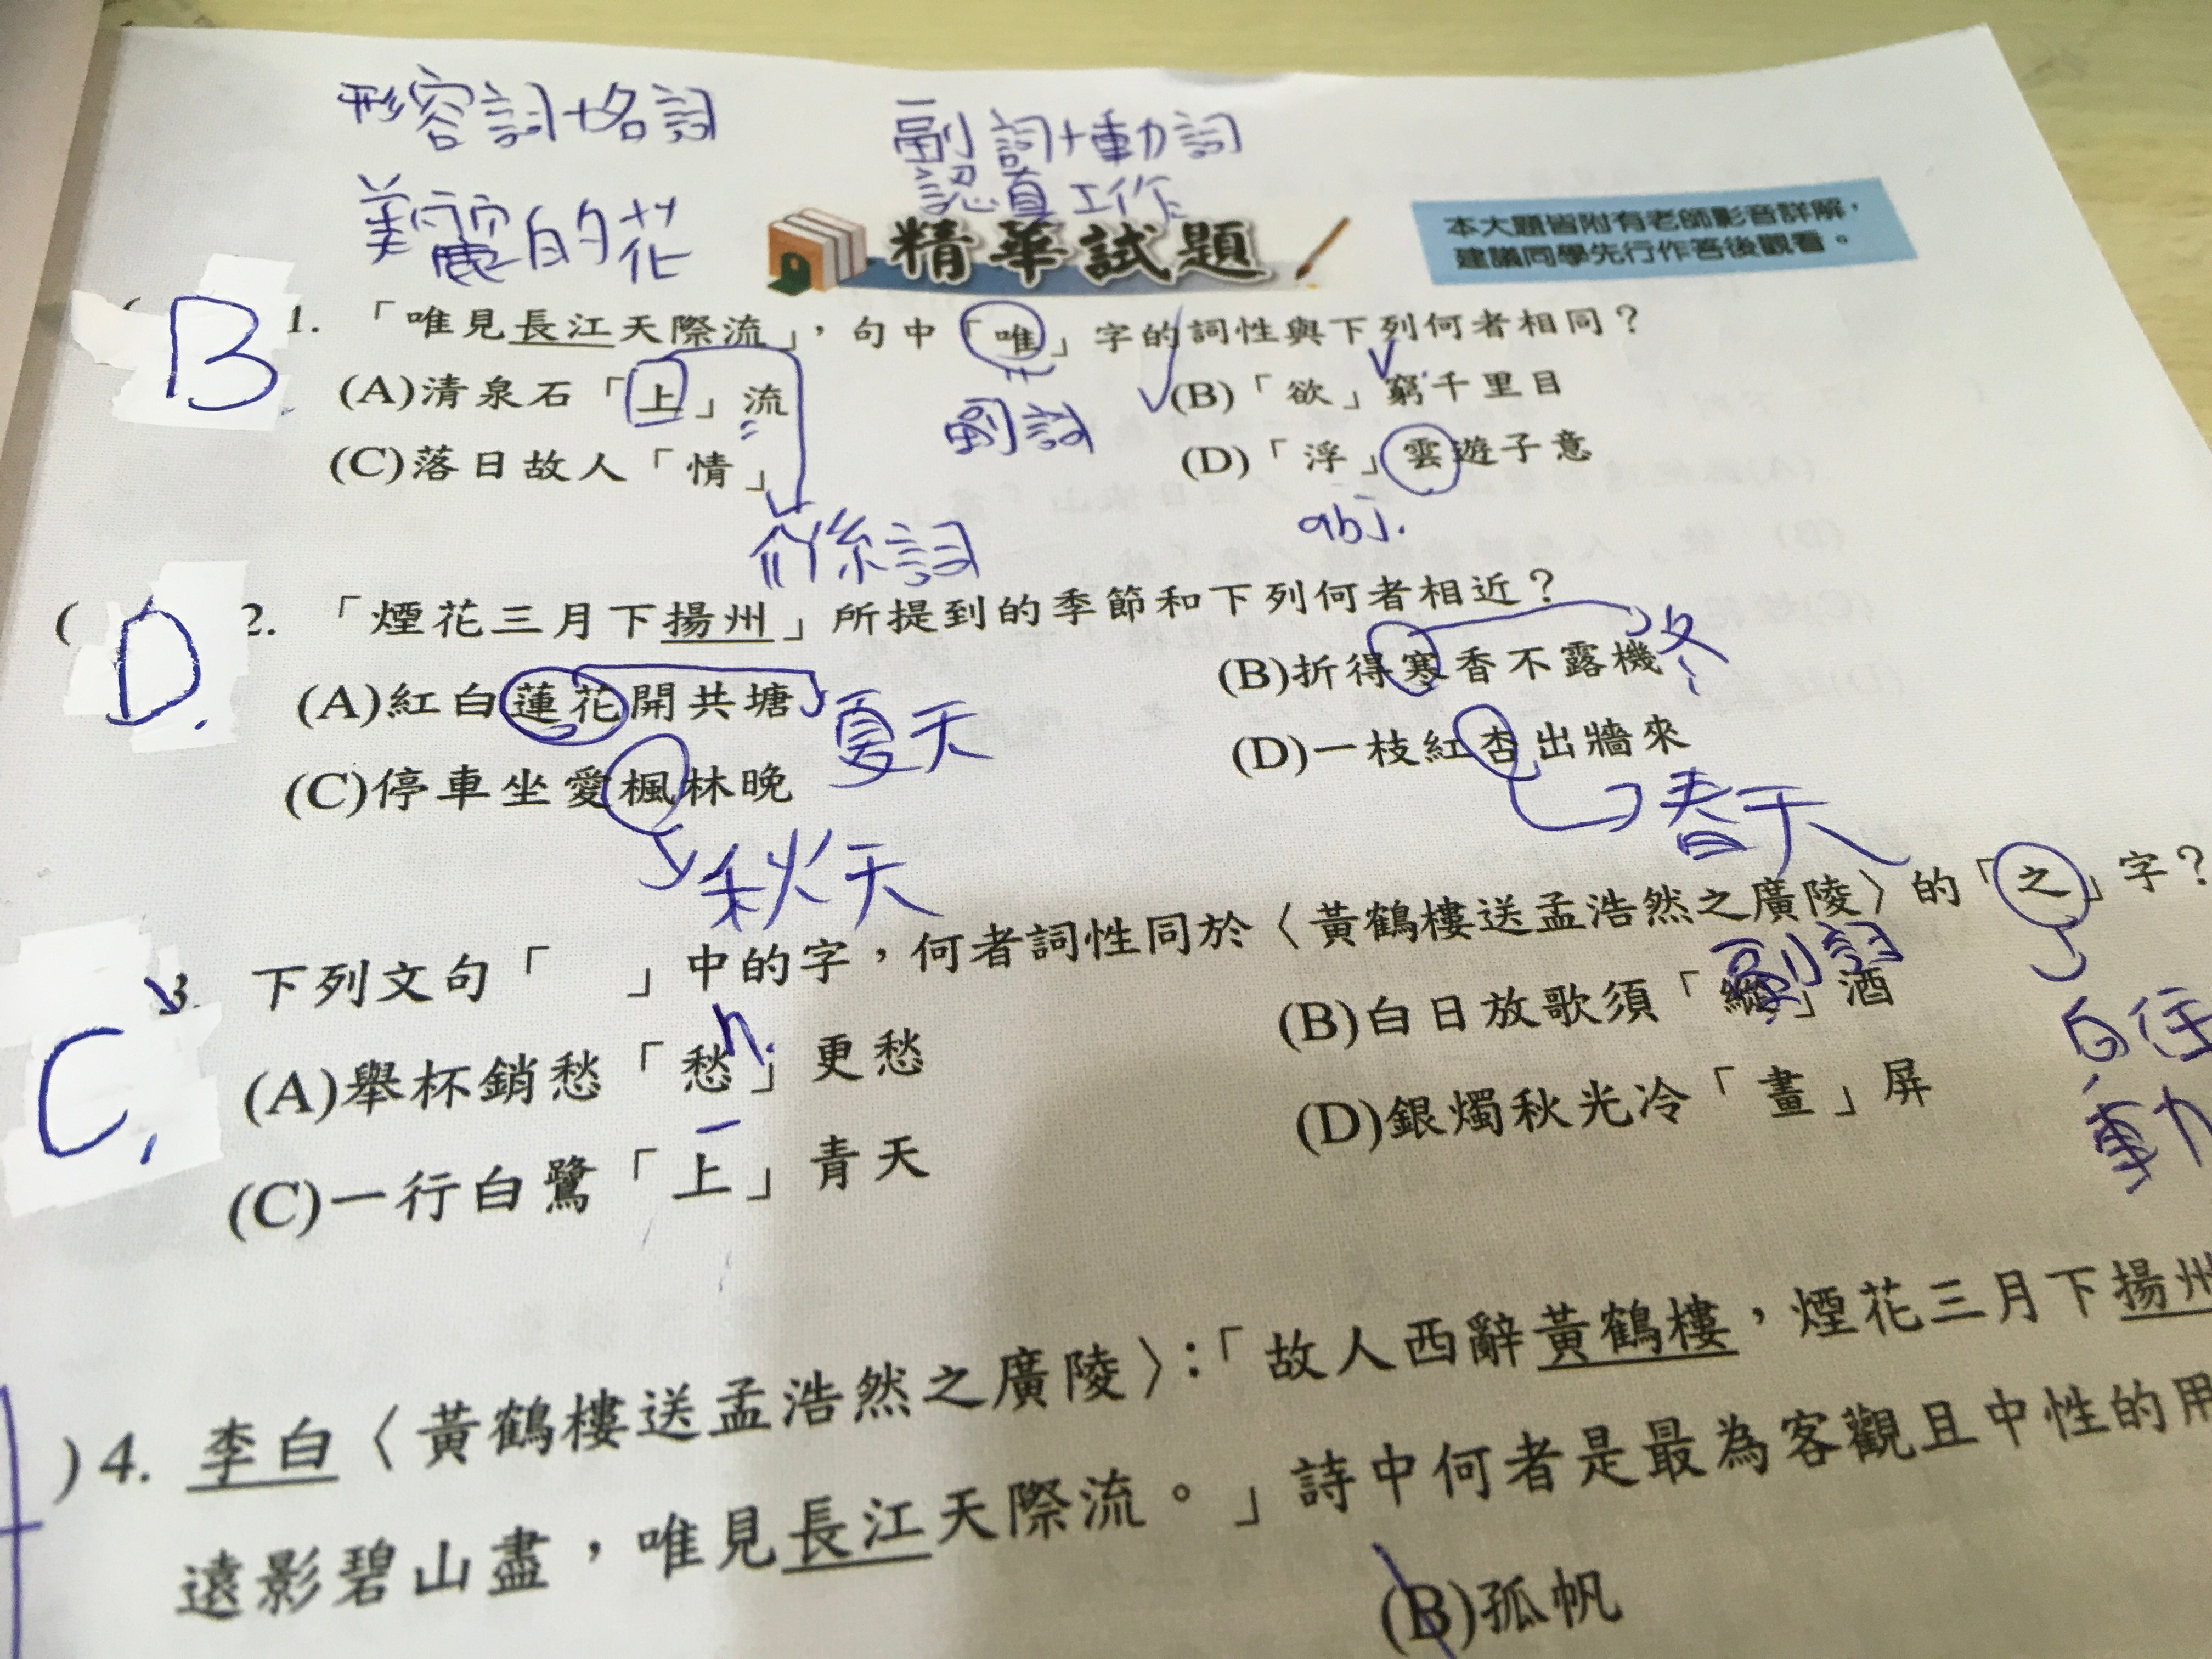 形容詞+名詞
副詞+動詞
美麗的花
認真工作
精華試題
本大題皆附有老師影音詳解，
建議同學先行作答後觀看。
( B 1. 「唯見長江天際流」，句中「唯」字的詞性與下列何者相同？
(A)清泉石「上」流
(B)「欲」窮千里目
副詞
v.
(C)落日故人「情」
(D)「浮」雲遊子意
介係詞
abj.
( D. 2. 「煙花三月下揚州」所提到的季節和下列何者相近？
(A)紅白蓮花開共塘
夏天
(B)折得寒香不露機
冬
(C)停車坐愛楓林晚
秋天
(D)一枝紅杏出牆來
春天
C. 3. 下列文句「　」中的字，何者詞性同於〈黃鶴樓送孟浩然之廣陵〉的「之」字？
n.
副詞
前往
動
(A)舉杯銷愁「愁」更愁
(B)白日放歌須「縱」酒
(C)一行白鷺「上」青天
(D)銀燭秋光冷「畫」屏
) 4. 李白〈黃鶴樓送孟浩然之廣陵〉：「故人西辭黃鶴樓，煙花三月下揚州
遠影碧山盡，唯見長江天際流。」詩中何者是最為客觀且中性的用
(B)孤帆